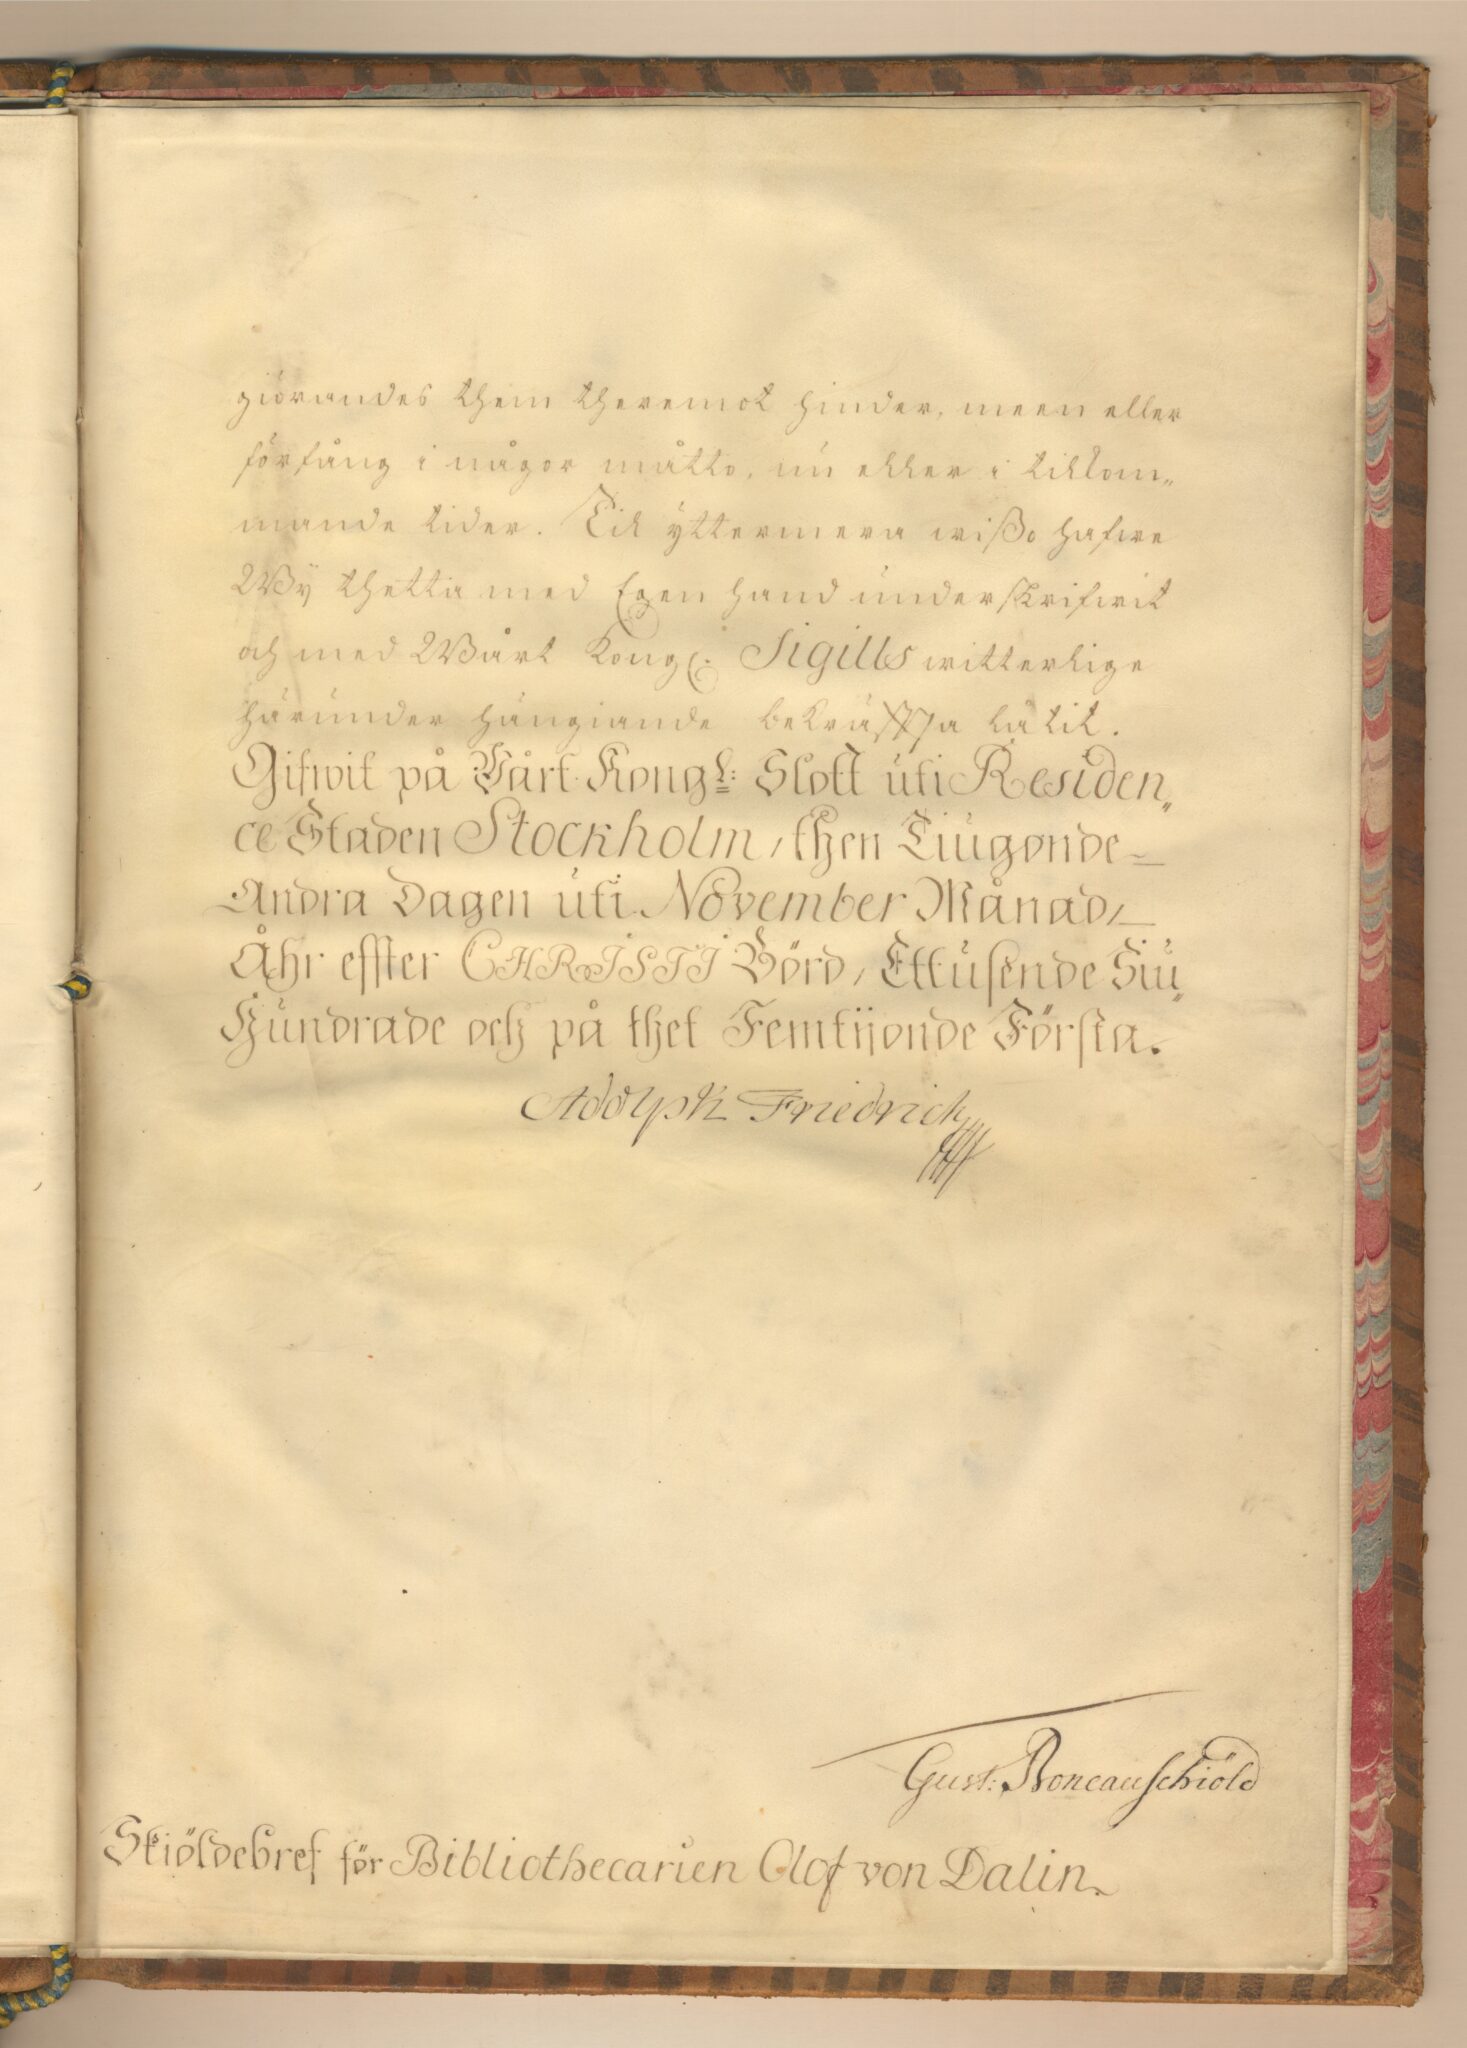 giörandes them theremot hinder, meen eller
förfång i någor måtto, nu eller i tillkom„
mande tider. Til yttermera wißo hafwe
Wy thetta med Egen hand underskrifwit
och med Wårt Kongl. Sigills witterlige
härunder hängiande bekräffta låtit.
Gifwit på Vårt Kongl: Slott uti Residen„
ce Staden Stockholm, then Tiugonde-
Andra Dagen uti November Månad,
Åhr effter CHRISTI Börd, Ettusende Siu„
Hundrade och på thet Femtijonde Första.
Adolph Friedrich
Gust: Boneauschiöld
Skiöldebref för Bibliothecarien Olof von Dalin.